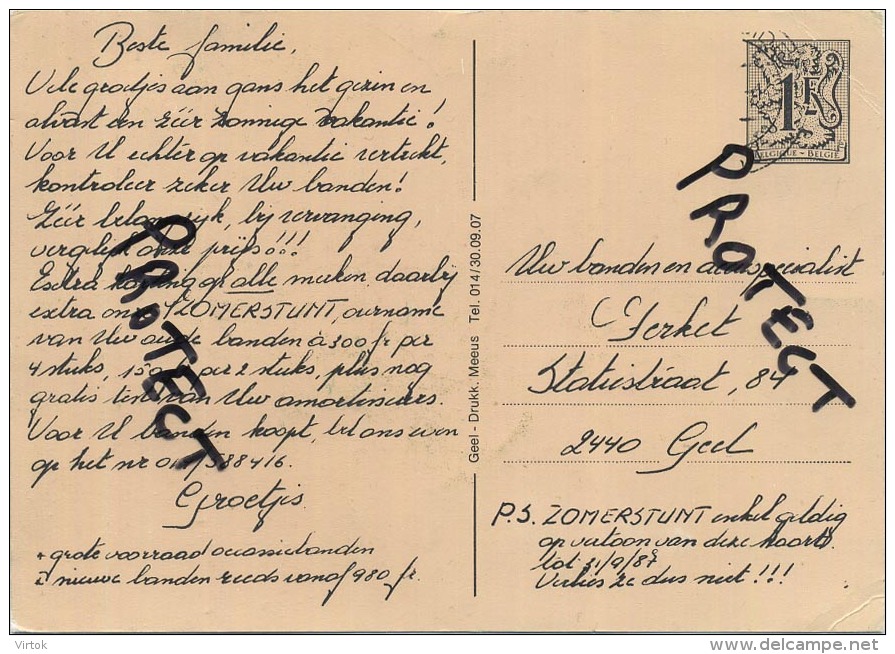 Beste familie,
Vele groetjes aan gans het gezin en
alvast een zéér zonnige vakantie!
Voor U echter op vakantie vertrekt,
kontroleer zeker Uw banden!
Zéér belangrijk, bij vervanging,
vergelijk onze prijs!!!
Extra korting op alle merken, daarbij
extra onze ZOMERSTUNT, overname
van Uw oude banden à 300 fr per
4 stuks, 150 fr per 2 stuks, plus nog
gratis test van Uw amortisseurs.
Voor U banden koopt, bel ons even
op het nr 014/588416.
Groetjes
+ grote voorraad occasiebanden
nieuwe banden reeds vanaf 980 fr.
PROTECT
Geel - Drukk. Meeus Tel. 014/30.09.07
1F
BELGIQUE - BELGIË
PROTECT
Uw banden en accuspecialist
Jerket
Statiestraat, 84
2440 Geel
P.S. ZOMERSTUNT enkel geldig
op vertoon van deze kaart
tot 31/9/87
Verlies ze dus niet!!!
Virtok
www.delcampe.net